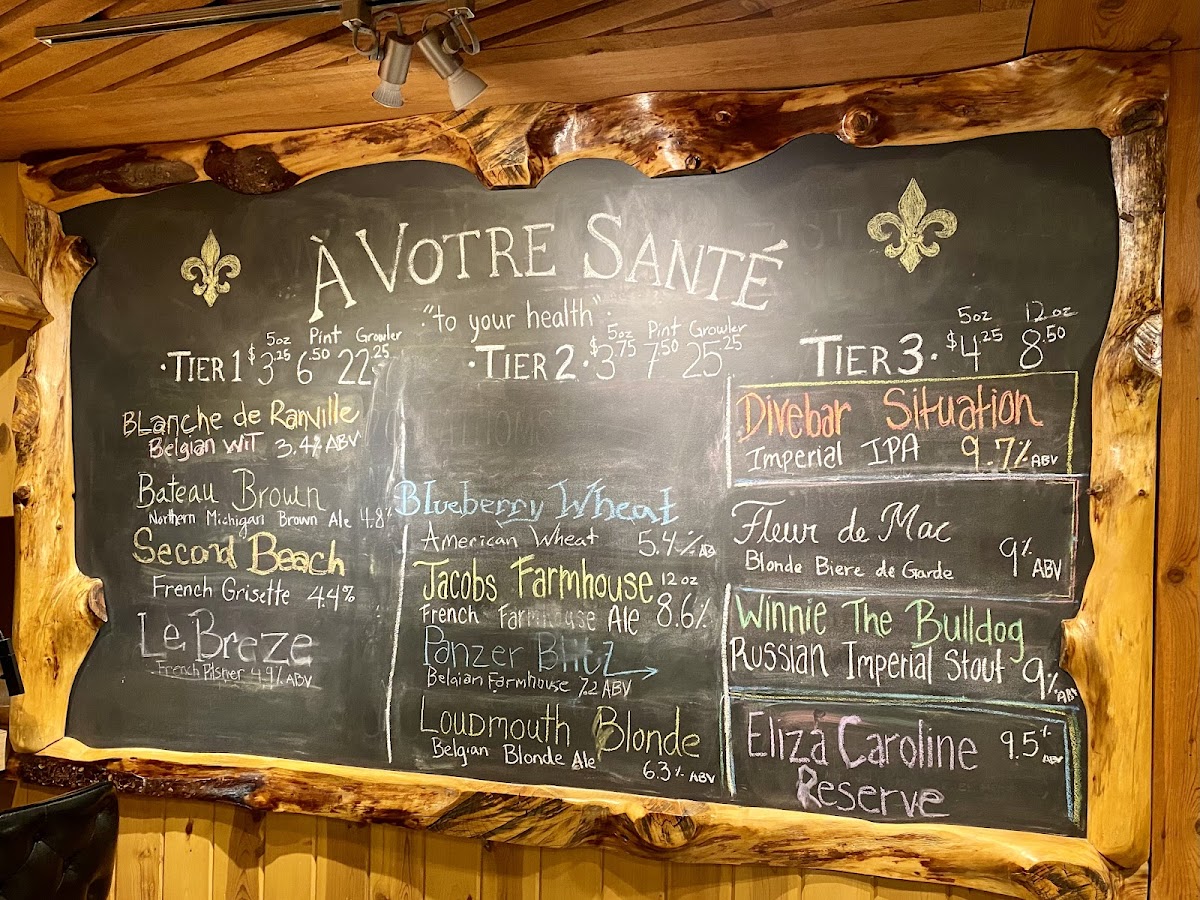 À VOTRE SANTÉ
"to your health"
5oz Pint Growler
• TIER 1 $3.25 6.50 22.25
BLanche de Ranville
Belgian WiT 3.4% ABV
Bateau Brown
Northern Michigan Brown Ale 4.8%
Second Beach
French Grisette 4.4%
Le Breze
French Pilsner 4.9% ABV
5oz Pint Growler
• TIER 2 • $3.75 7.50 25.25
Blueberry Wheat
American Wheat 5.4% AB
Jacobs Farmhouse 12 oz
French Farmhouse Ale 8.6%
Panzer Blitz
Belgian Farmhouse 7.2 ABV
Loudmouth Blonde
Belgian Blonde Ale
6.3% ABV
5oz 12oz
TIER 3 • $4.25 8.50
Divebar Situation
Imperial IPA 9.7% ABV
Fleur de Mac
Blonde Biere de Garde 9% ABV
Winnie The Bulldog
Russian Imperial Stout 9% ABV
Eliza Caroline 9.5% ABV
Reserve